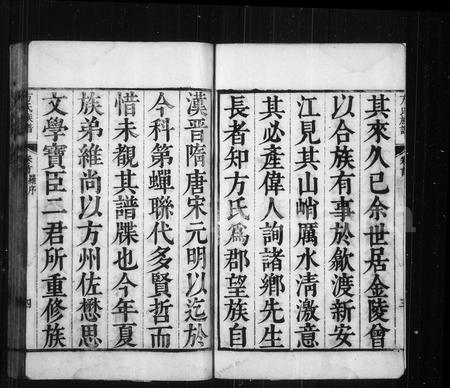 其來久已余世居金陵曾
以合族有事於歙渡新安
江見其山峭厲水清激意
其必產偉人詢諸鄉先生
長者知方氏為郡望族自
漢晉隋唐宋元明以迄於
今科第蟬聯代多賢哲而
惜未觀其譜牒也今年夏
族弟維尚以方州佐懋思
文學寶臣二君所重修族
方氏族譜
卷首 羅序
四